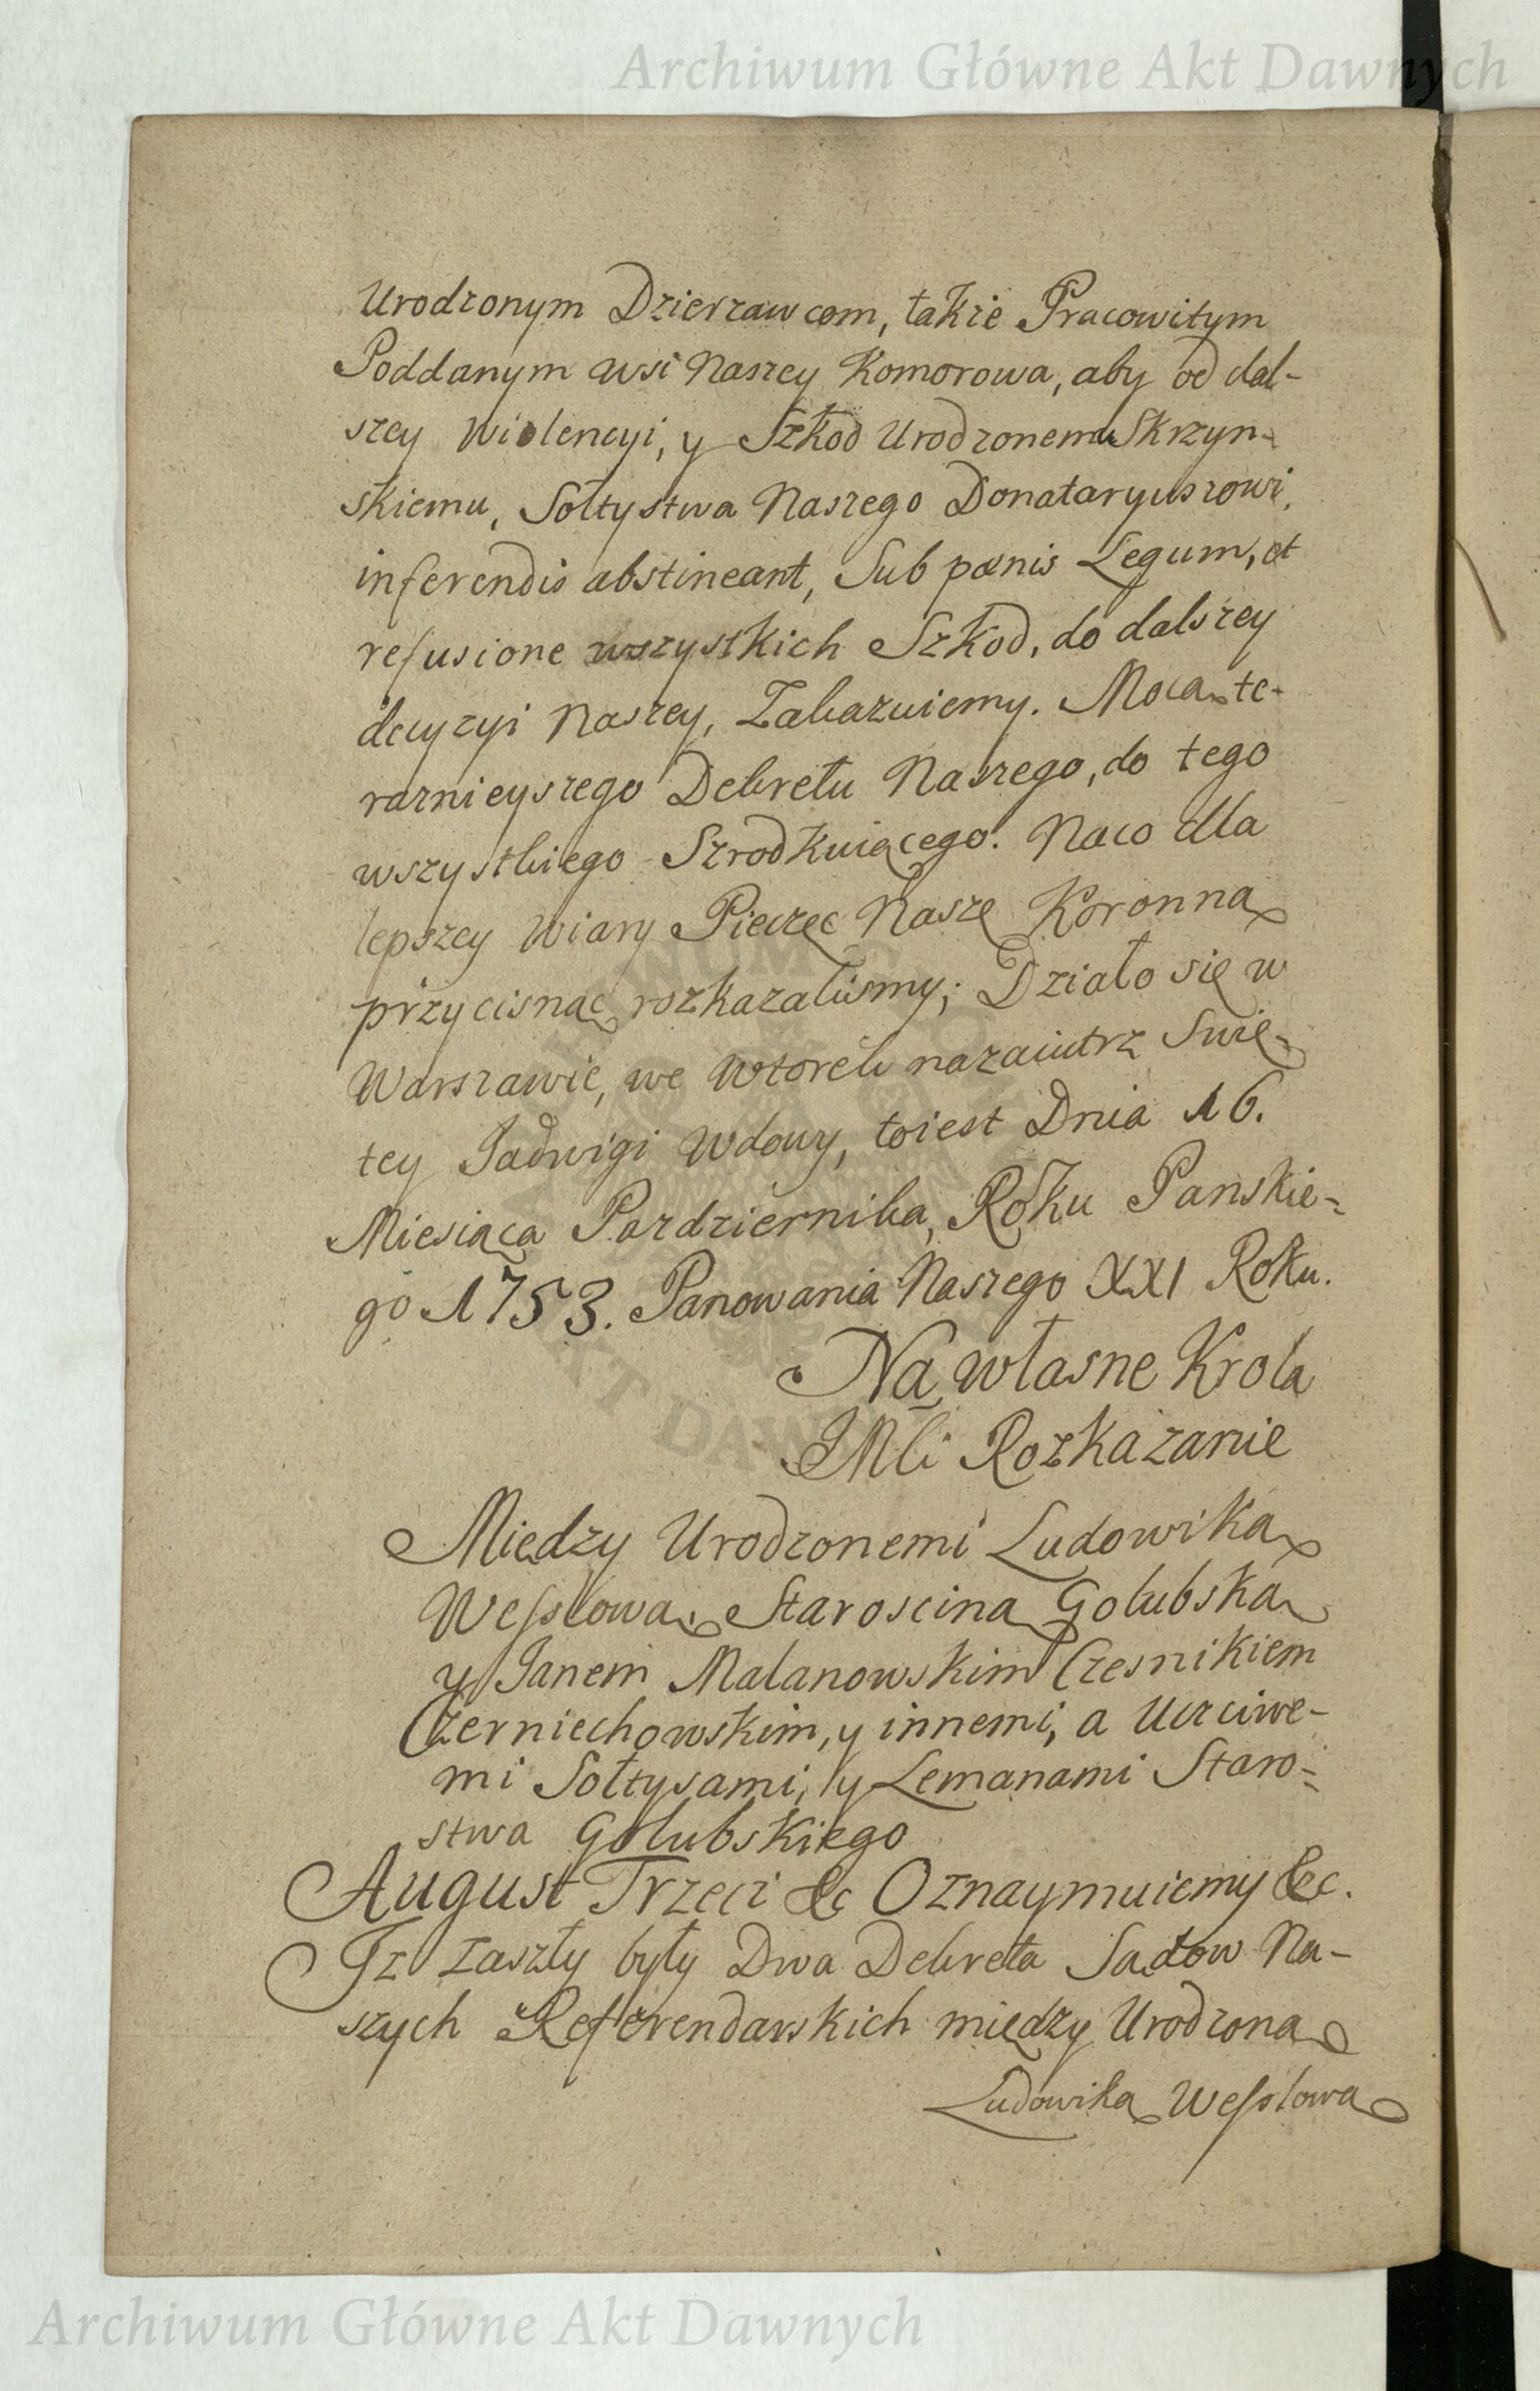 Archiwum Główne Akt Dawnych
Urodzonym Dzierzawcom, takze Pracowitym
Poddanym wsi Naszey Komorowa, aby od dal-
szey wiolencyi, y Szkod Urodzonemu Skrzyn-
skiemu, Sołtystwa Naszego Donataryuszowi,
inferendis abstineant, Sub pœnis Legum, et
refusione wszystkich Szkod, do dalszey
decyzyi Naszey, Zakazuiemy. Mocą te-
raznieyszego Dekretu Naszego, do tego
wszystkiego Szrodkuiącego. Naco dla
lepszey wiary Pieczęc Naszę Koronną
przycisnąc rozkazalismy; Działo się w
Warszawie, we Wtorek nazaiutrz Swię-
tey Jadwigi Wdowy, toiest Dnia 16.
Miesiąca Pazdziernika, Roku Panskie-
go 1753. Panowania Naszego XXI Roku.
Na własne Krola
JMci Rozkazanie
Między Urodzonemi Ludowiką
Wesslową, Staroscina Golubską
y Janem Malanowskim Czesnikiem
Czerniechowskim, y innemi, a Uczciwe-
mi Sołtysami, y Lemanami Staro-
stwa Golubskiego
August Trzeci &c Oznaymuiemy &c.
Jz zaszły były Dwa Dekreta Sądow Na-
szych Referendarskich między Urodzoną
Ludowiką Wesslową
Archiwum Główne Akt Dawnych